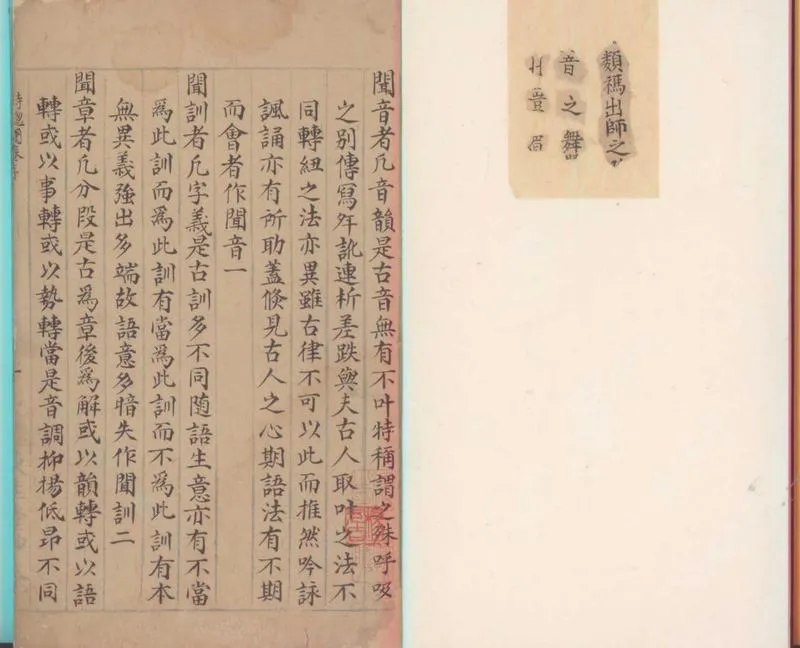 類禡出師之
音之舞
聞音者凡音韻是古音無有不叶特稱謂之殊呼吸
之別傳寫舛訛連析差跌與夫古人取叶之法不
同轉紐之法亦異雖古律不可以此而推然吟詠
諷誦亦有所助蓋倏見古人之心期語法有不期
而會者作聞音一
聞訓者凡字義是古訓多不同随語生意亦有不當
爲此訓而爲此訓有當爲此訓而不爲此訓有本
無異義強出多端故語意多暗失作聞訓二
聞章者凡分段是古爲章後爲解或以韻轉或以語
轉或以事轉或以勢轉當是音調抑揚低昂不同